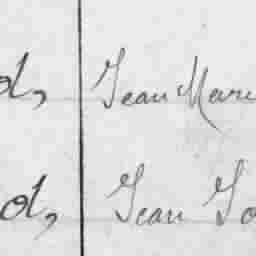 d, Jean Marie
od, Jean Jo